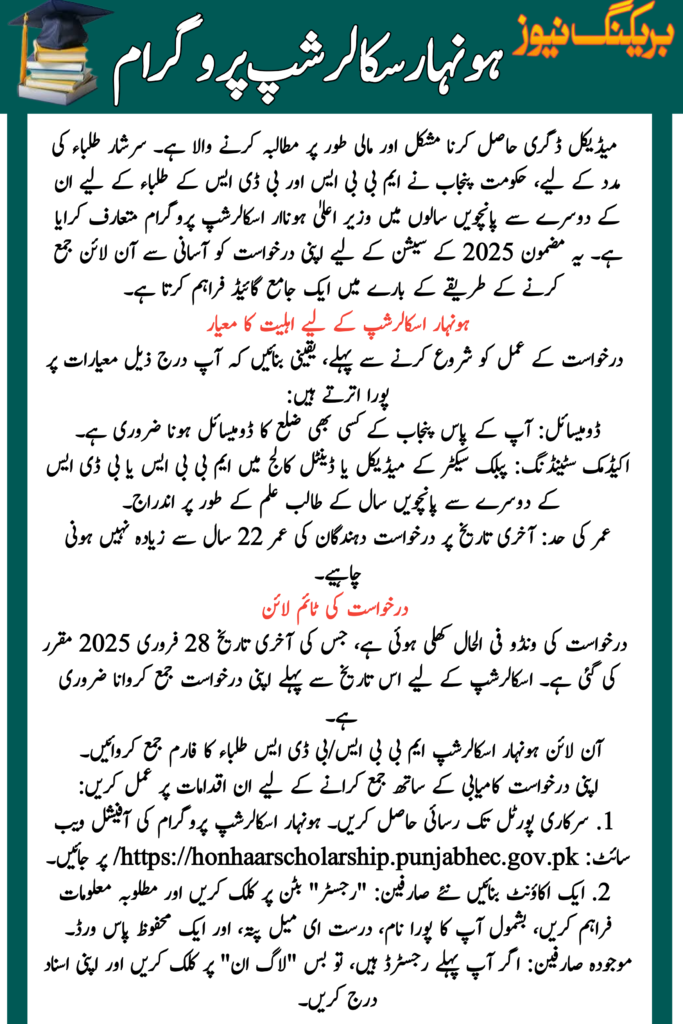 بریکنگ نیوز
ہونہار سکالرشپ پروگرام
میڈیکل ڈگری حاصل کرنا مشکل اور مالی طور پر مطالبہ کرنے والا ہے۔ سرشار طلباء کی
مدد کے لیے، حکومت پنجاب نے ایم بی بی ایس اور بی ڈی ایس کے طلباء کے لیے ان
کے دوسرے سے پانچویں سالوں میں وزیر اعلیٰ ہونہار اسکالرشپ پروگرام متعارف کرایا
ہے۔ یہ مضمون 2025 کے سیشن کے لیے اپنی درخواست کو آسانی سے آن لائن جمع
کرنے کے طریقے کے بارے میں ایک جامع گائیڈ فراہم کرتا ہے۔
ہونہار اسکالرشپ کے لیے اہلیت کا معیار
درخواست کے عمل کو شروع کرنے سے پہلے، یقینی بنائیں کہ آپ درج ذیل معیارات پر
پورا اترتے ہیں:
ڈومیسائل: آپ کے پاس پنجاب کے کسی بھی ضلع کا ڈومیسائل ہونا ضروری ہے۔
اکیڈمک سٹینڈنگ: پبلک سیکٹر کے میڈیکل یا ڈینٹل کالج میں ایم بی بی ایس یا بی ڈی ایس
کے دوسرے سے پانچویں سال کے طالب علم کے طور پر اندراج۔
عمر کی حد: آخری تاریخ پر درخواست دہندگان کی عمر 22 سال سے زیادہ نہیں ہونی
چاہیے۔
درخواست کی ٹائم لائن
درخواست کی ونڈو فی الحال کھلی ہوئی ہے، جس کی آخری تاریخ 28 فروری 2025 مقرر
کی گئی ہے۔ اسکالرشپ کے لیے اس تاریخ سے پہلے اپنی درخواست جمع کروانا ضروری
ہے۔
آن لائن ہونہار اسکالرشپ ایم بی بی ایس/بی ڈی ایس طلباء کا فارم جمع کروائیں۔
اپنی درخواست کامیابی کے ساتھ جمع کرانے کے لیے ان اقدامات پر عمل کریں:
1. سرکاری پورٹل تک رسائی حاصل کریں۔ ہونہار اسکالرشپ پروگرام کی آفیشل ویب
سائٹ: https://honhaarscholarship.punjabhec.gov.pk/ پر جائیں۔
2. ایک اکاؤنٹ بنائیں نئے صارفین: "رجسٹر" بٹن پر کلک کریں اور مطلوبہ معلومات
فراہم کریں، بشمول آپ کا پورا نام، درست ای میل پتہ، اور ایک محفوظ پاس ورڈ۔
موجودہ صارفین: اگر آپ پہلے رجسٹرڈ ہیں، تو بس "لاگ ان" پر کلک کریں اور اپنی اسناد
درج کریں۔